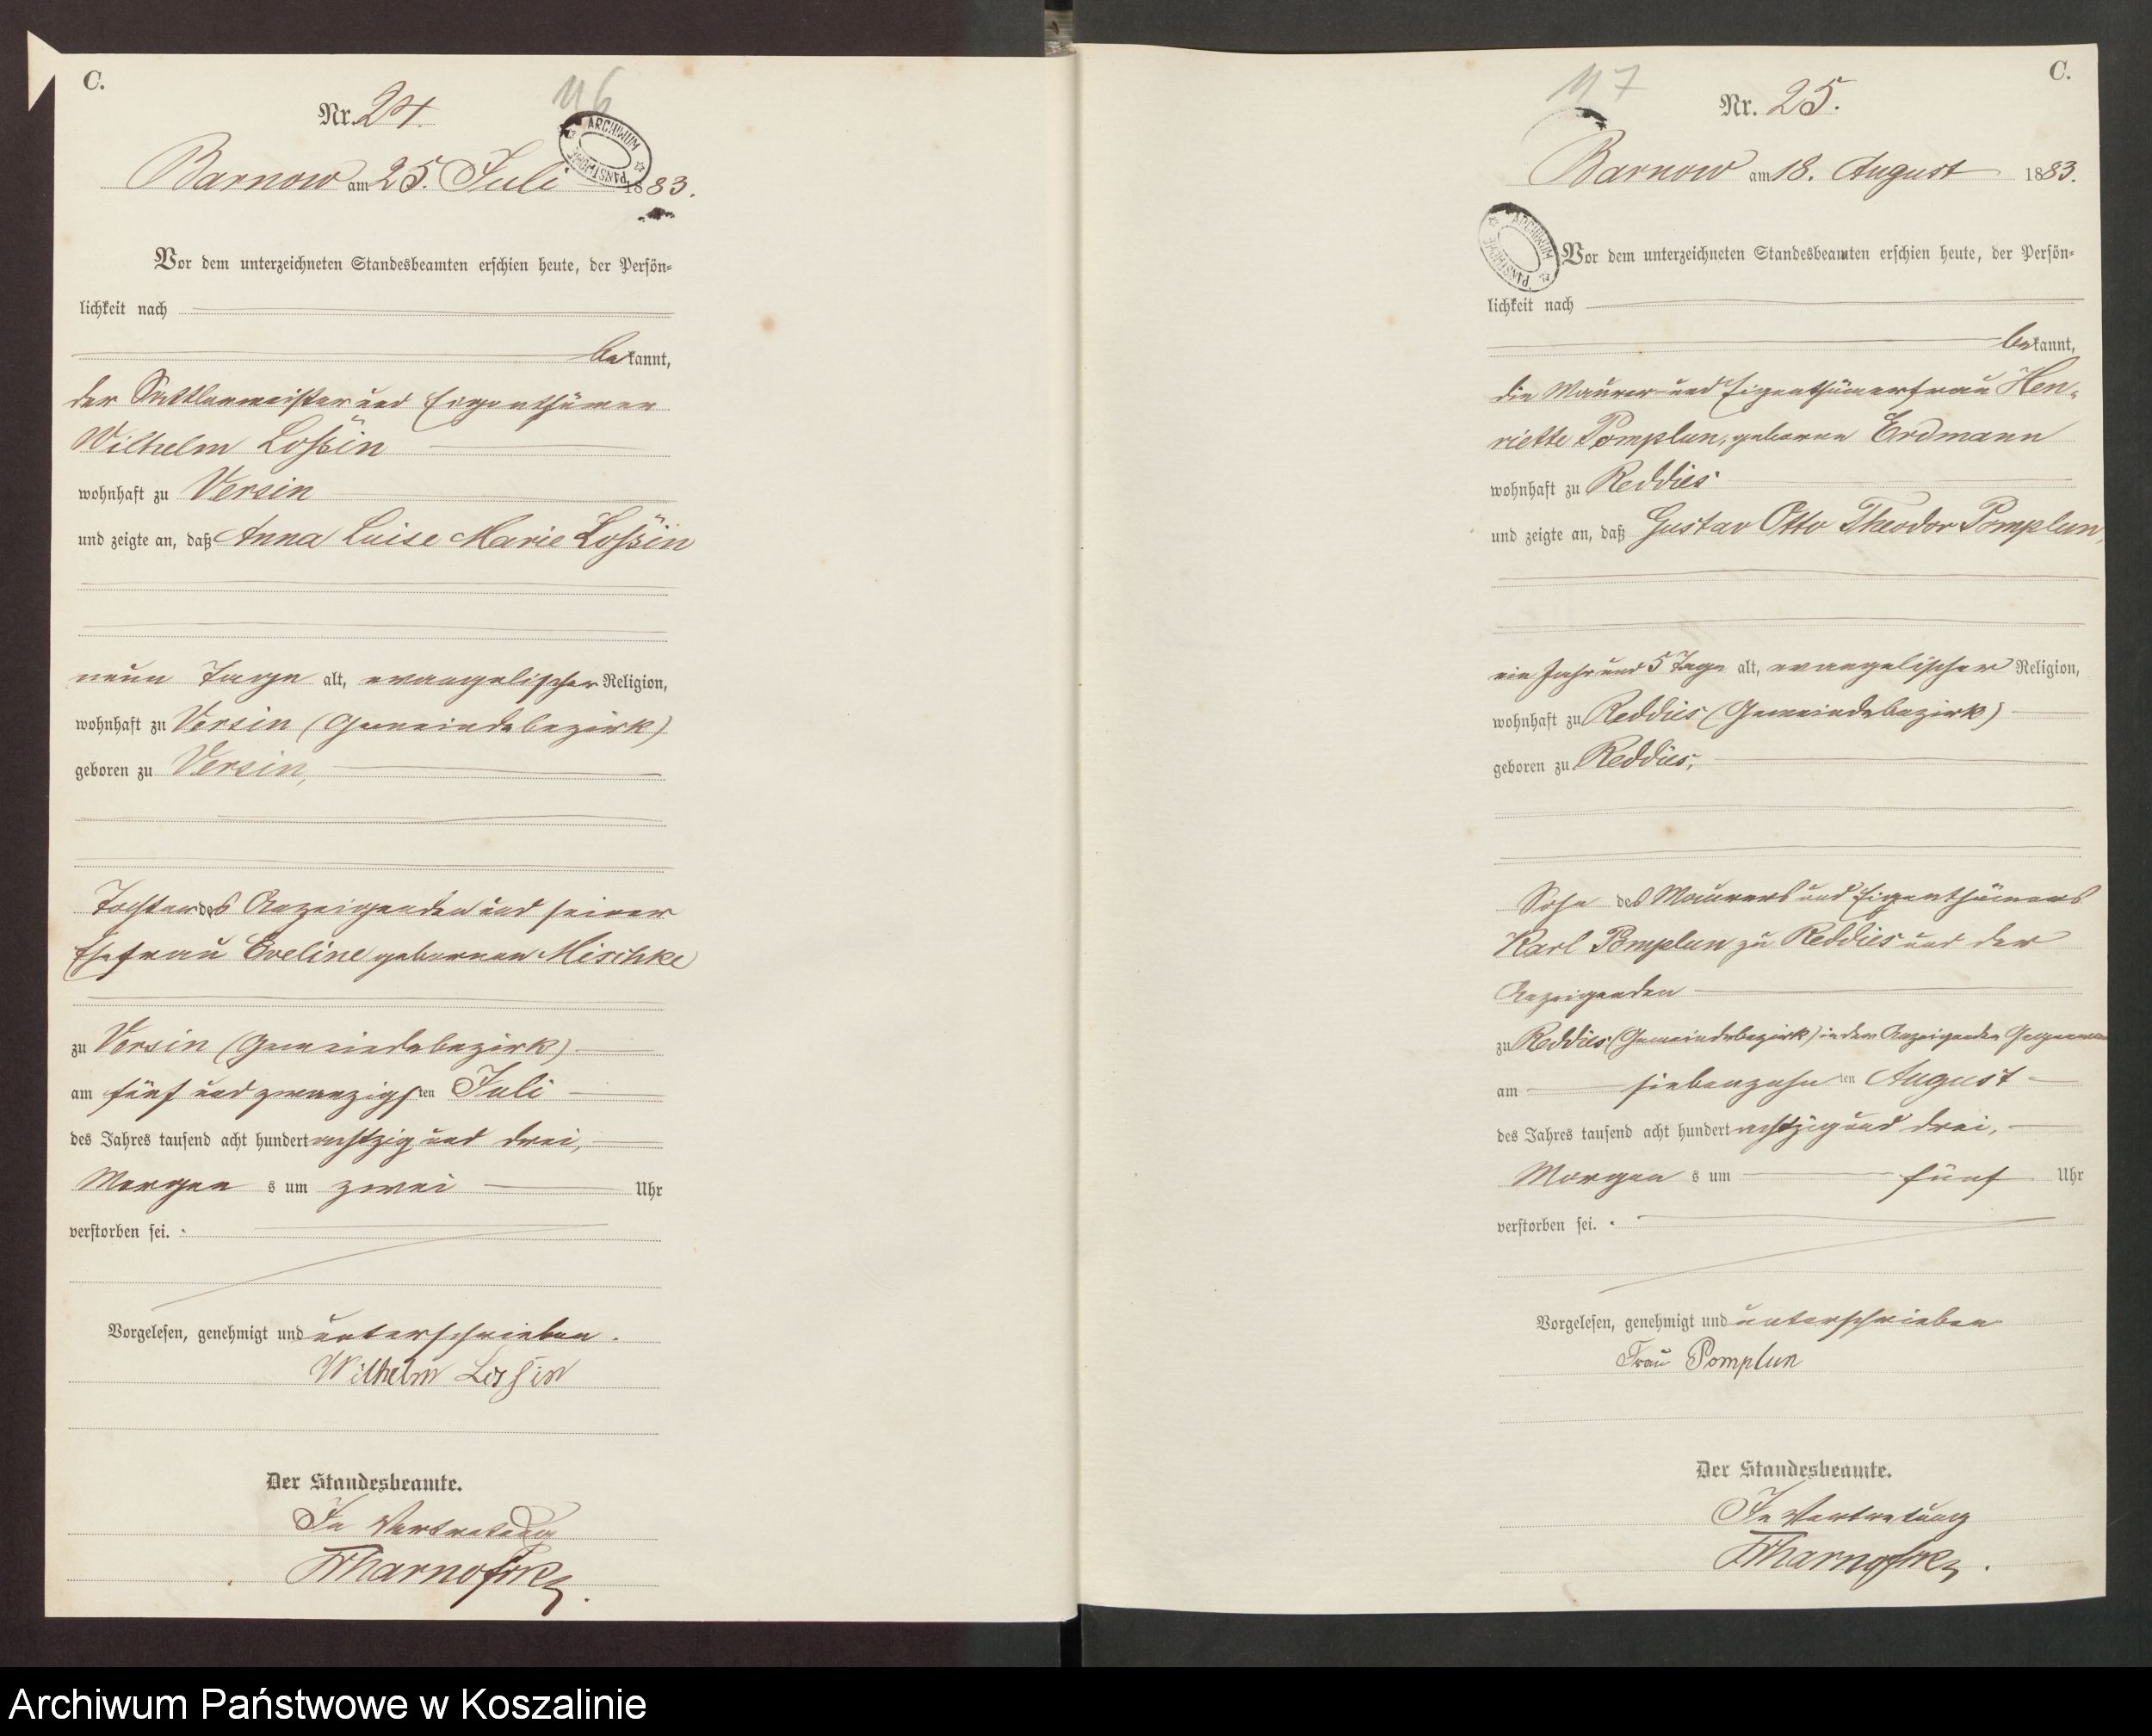 C.
116
Nr. 24.
ARCHIWUM PAŃSTWOWE
Barnow am 25. Juli 1883.
Vor dem unterzeichneten Standesbeamten erschien heute, der Persön-
lichkeit nach
bekannt,
der Sattlermeister und Eigenthümer
Wilhelm Loßin
wohnhaft zu Versin
und zeigte an, daß Anna Luise Marie Loßin
neun Tage alt, evangelischer Religion,
wohnhaft zu Versin (Gemeindebezirk)
geboren zu Versin,
Tochter des Anzeigenden und seiner
Ehefrau Eveline geborenen Mischke
zu Versin (Gemeindebezirk)
am fünf und zwanzigsten Juli
des Jahres tausend acht hundert achtzig und drei,
Morgens um zwei Uhr
verstorben sei.
Vorgelesen, genehmigt und unterschrieben.
Wilhelm Lossin
Der Standesbeamte.
In Vertretung
C.
117
Nr. 25.
Barnow am 18. August 1883.
ARCHIWUM PAŃSTWOWE
Vor dem unterzeichneten Standesbeamten erschien heute, der Persön-
lichkeit nach
bekannt,
die Maurer- und Eigenthümerfrau Hen-
riette Pomplun, geborene Erdmann
wohnhaft zu Reddies
und zeigte an, daß Gustav Otto Theodor Pomplun,
ein Jahr und 5 Tage alt, evangelischer Religion,
wohnhaft zu Reddies (Gemeindebezirk)
geboren zu Reddies,
Sohn des Maurers und Eigenthümers
Karl Pomplun zu Reddies und der
Anzeigenden
zu Reddies (Gemeindebezirk) in der Anzeigenden Gegenwart
am siebenzehnten August
des Jahres tausend acht hundert achtzig und drei,
Morgens um fünf Uhr
verstorben sei.
Vorgelesen, genehmigt und unterschrieben
Frau Pomplun
Der Standesbeamte.
In Vertretung
Archiwum Państwowe w Koszalinie